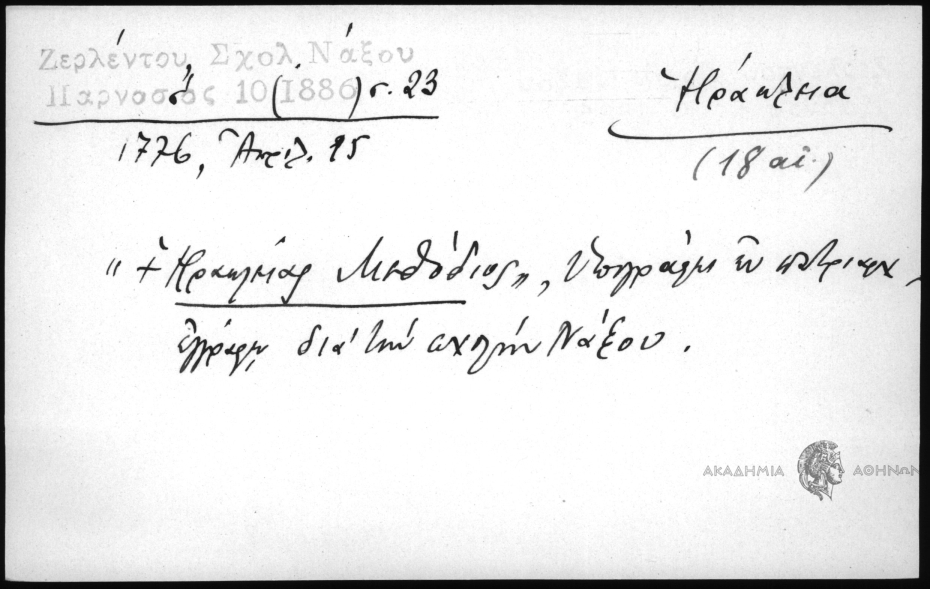 Ζερλέντου, Σχολ. Νάξου
Παρνασσός 10 (1886) σ. 23
1776, Ἀπριλ. 15
Ἡράκλεια
(18 αἰ.)
"+ Ἡρακλείας Μεθόδιος", ὑπογράφει ἐν πατριαρχ.
ἐγγράφῳ διά τήν σχολήν Νάξου.
ΑΚΑΔΗΜΙΑ ΑΘΗΝΩΝ